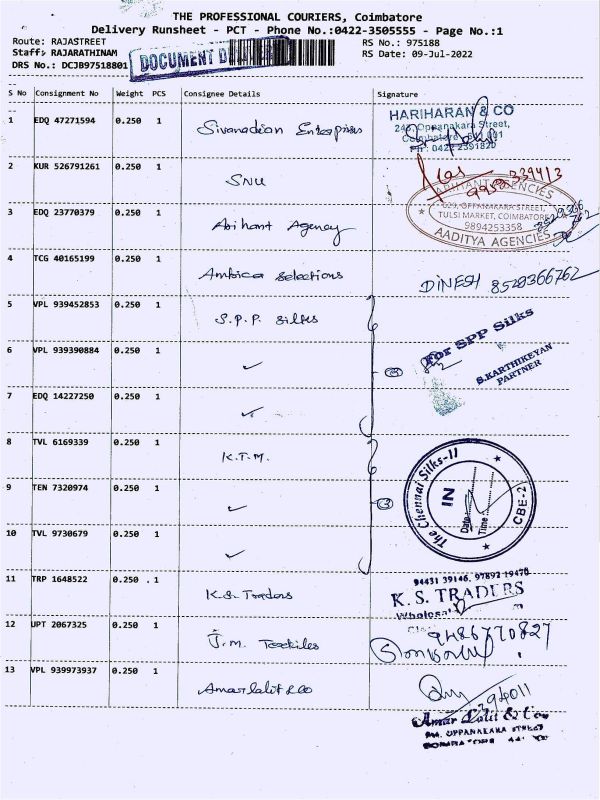 THE PROFESSIONAL COURIERS, Coimbatore
Delivery Runsheet - PCT - Phone No.:0422-3505555 - Page No.:1
Route: RAJASTREET RS No.: 975188
Staff: RAJARATHINAM RS Date: 09-Jul-2022
DRS No.: DCJB97518801 DOCUMENT
S No Consignment No Weight PCS Consignee Details Signature
1 EDQ 47271594 0.250 1 Sivanadian Enterprises
HARIHARAN & CO
Oppanakara Street,
Coimbatore
Ph : 0422 2391820
2 KUR 526791261 0.250 1 SNU
3 EDQ 23770379 0.250 1 Arihant Agency
ARIHANT AGENCIES
629, OPPANAKARA STREET,
TULSI MARKET, COIMBATORE
9894253358
AADITYA AGENCIES
4 TCG 40165199 0.250 1 Ambica Selections DINESH 8520366762
5 VPL 939452853 0.250 1 S.P.P. Silks
For SPP Silks
S.KARTHIKEYAN
PARTNER
6 VPL 939390884 0.250 1 ✓ ③
7 EDQ 14227250 0.250 1 ✓
8 TVL 6169339 0.250 1 K.T.M.
The Chennai Silks-II
IN
Date
Time
CBE-2
9 TEN 7320974 0.250 1 ✓ ③
10 TVL 9730679 0.250 1 ✓
11 TRP 1648522 0.250 1 K.S. Traders
94431 39146, 97892 19470
K. S. TRADERS
Wholesale
12 UPT 2067325 0.250 1 J.M. Textiles 9486770827
13 VPL 939973937 0.250 1 Amarlalit & co
Amar Lalit & Co
OPPANAKARA STREET